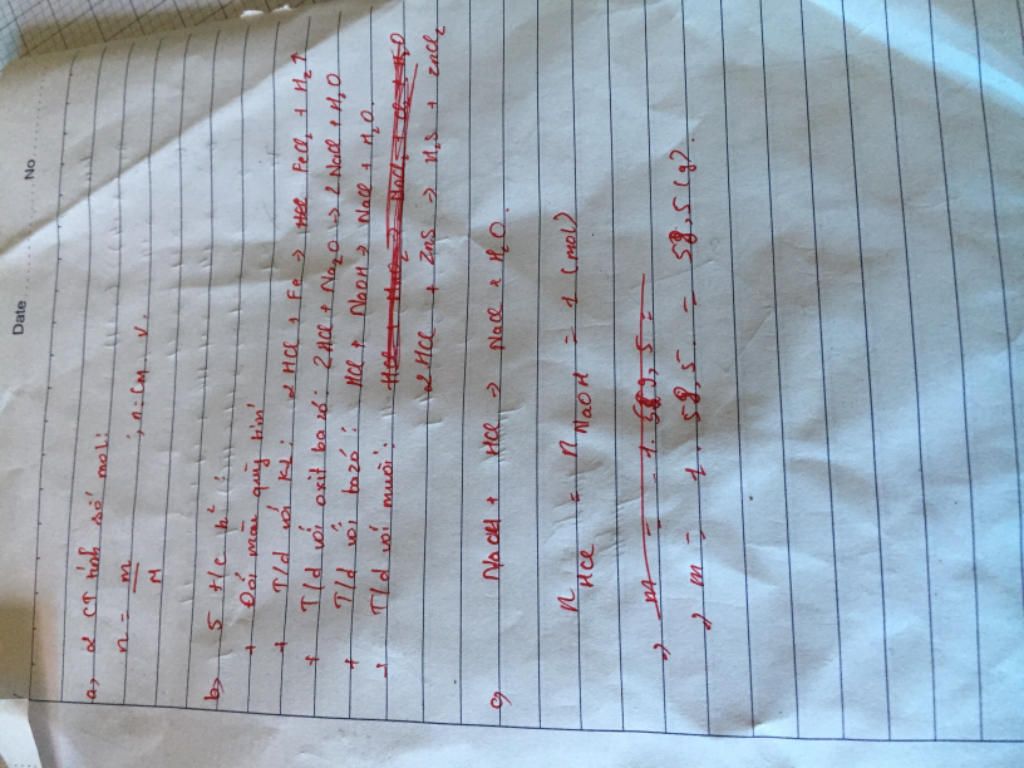 Date No
a, 2 CT tính số mol:
n = m/M ; n = CM. V.
b, 5 t/c h²:
+ Đổi màu quỳ tím
+ T/d với KL: 2 HCl + Fe → HCl FeCl₂ + H₂↑
+ T/d với oxit bazơ: 2 HCl + Na₂O → 2 NaCl + H₂O
+ T/d với bazơ: HCl + NaOH → NaCl + H₂O.
+ T/d với muối:
2 HCl + ZnS → H₂S + ZnCl₂
c, NaOH + HCl → NaCl + H₂O.
n HCl = n NaOH = 1 (mol)
⇒ m = 1. 58,5 =
⇒ m = 1. 58,5. = 58,5 (g).